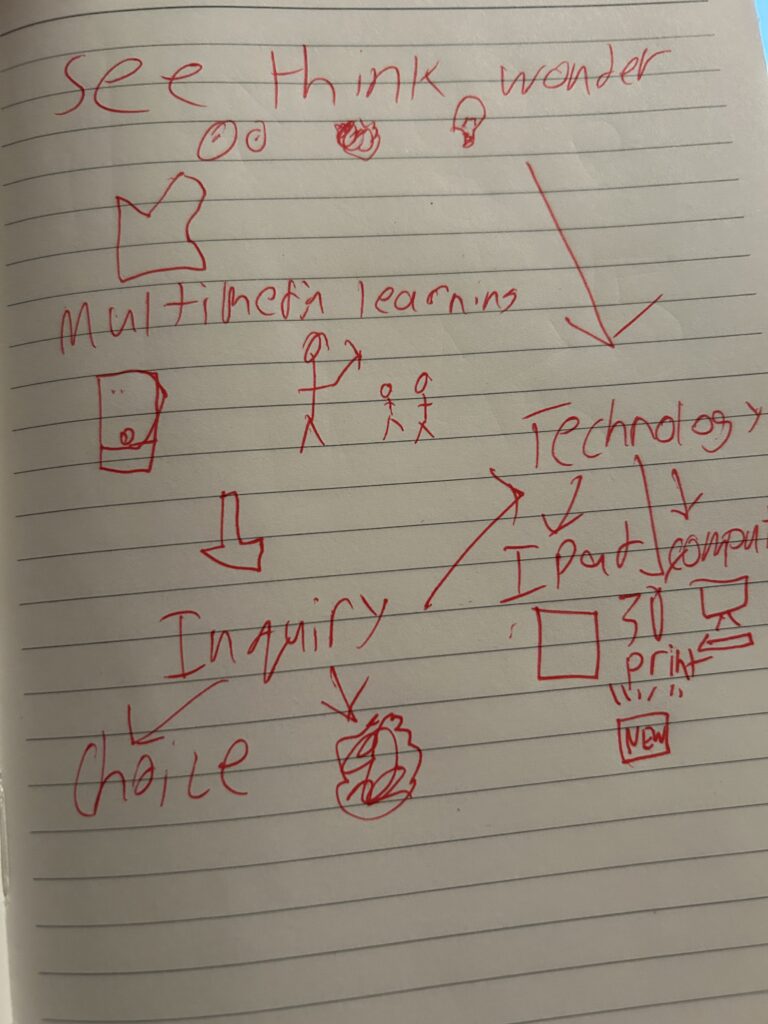 See think wonder
Multimedia learning
Technology
IPad comput
3D
print
NEW
Inquiry
Choice